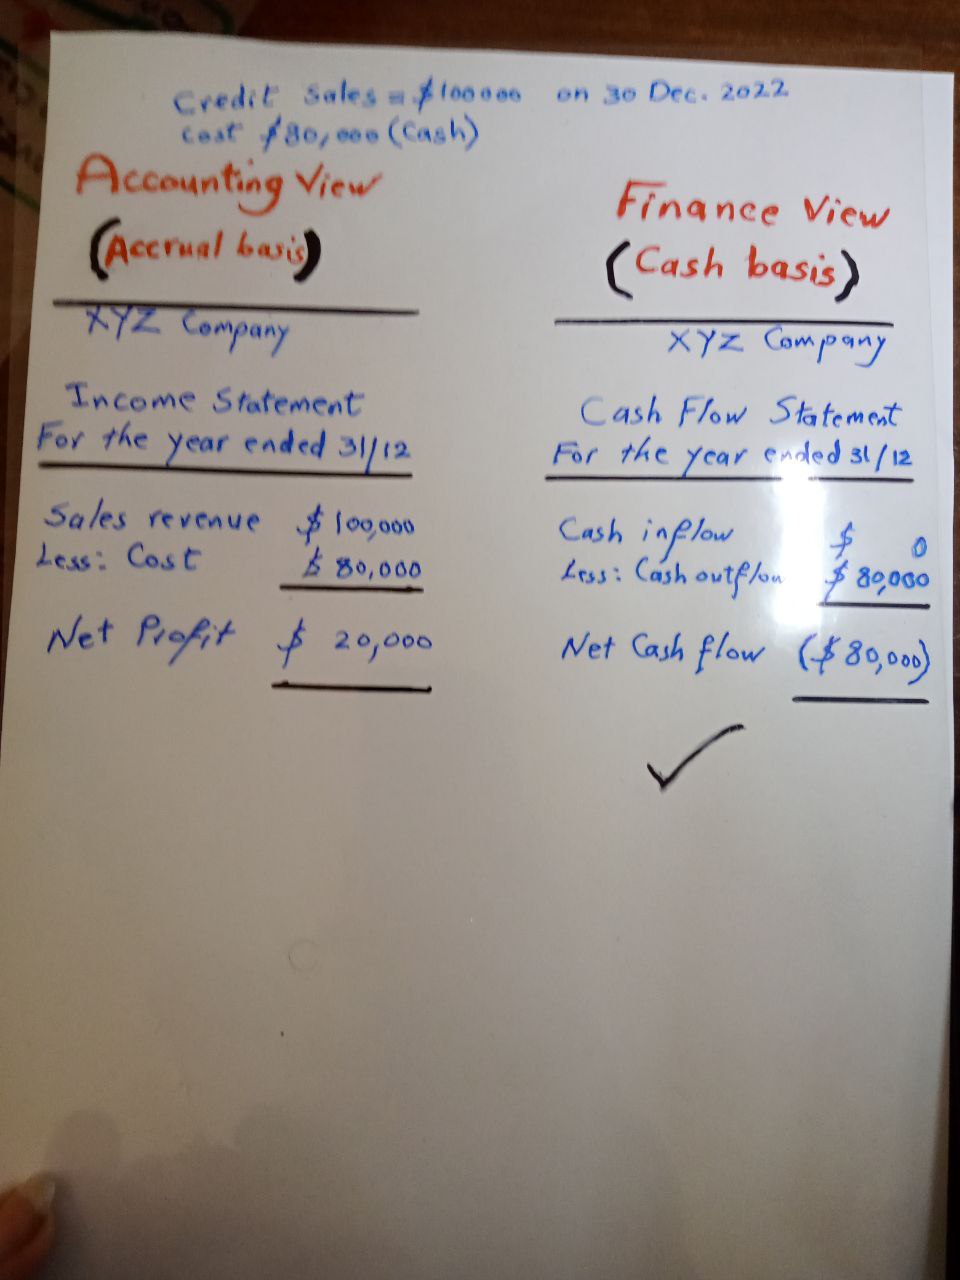 Credit Sales = $100000 on 30 Dec. 2022
Cost $80,000 (Cash)
Accounting View
(Accrual basis)
XYZ Company
Income Statement
For the year ended 31/12
Sales revenue $ 100,000
Less: Cost $ 80,000
Net Profit $ 20,000
Finance View
(Cash basis)
XYZ Company
Cash Flow Statement
For the year ended 31/12
Cash inflow $ 0
Less: Cash outflow $ 80,000
Net Cash flow ($ 80,000)